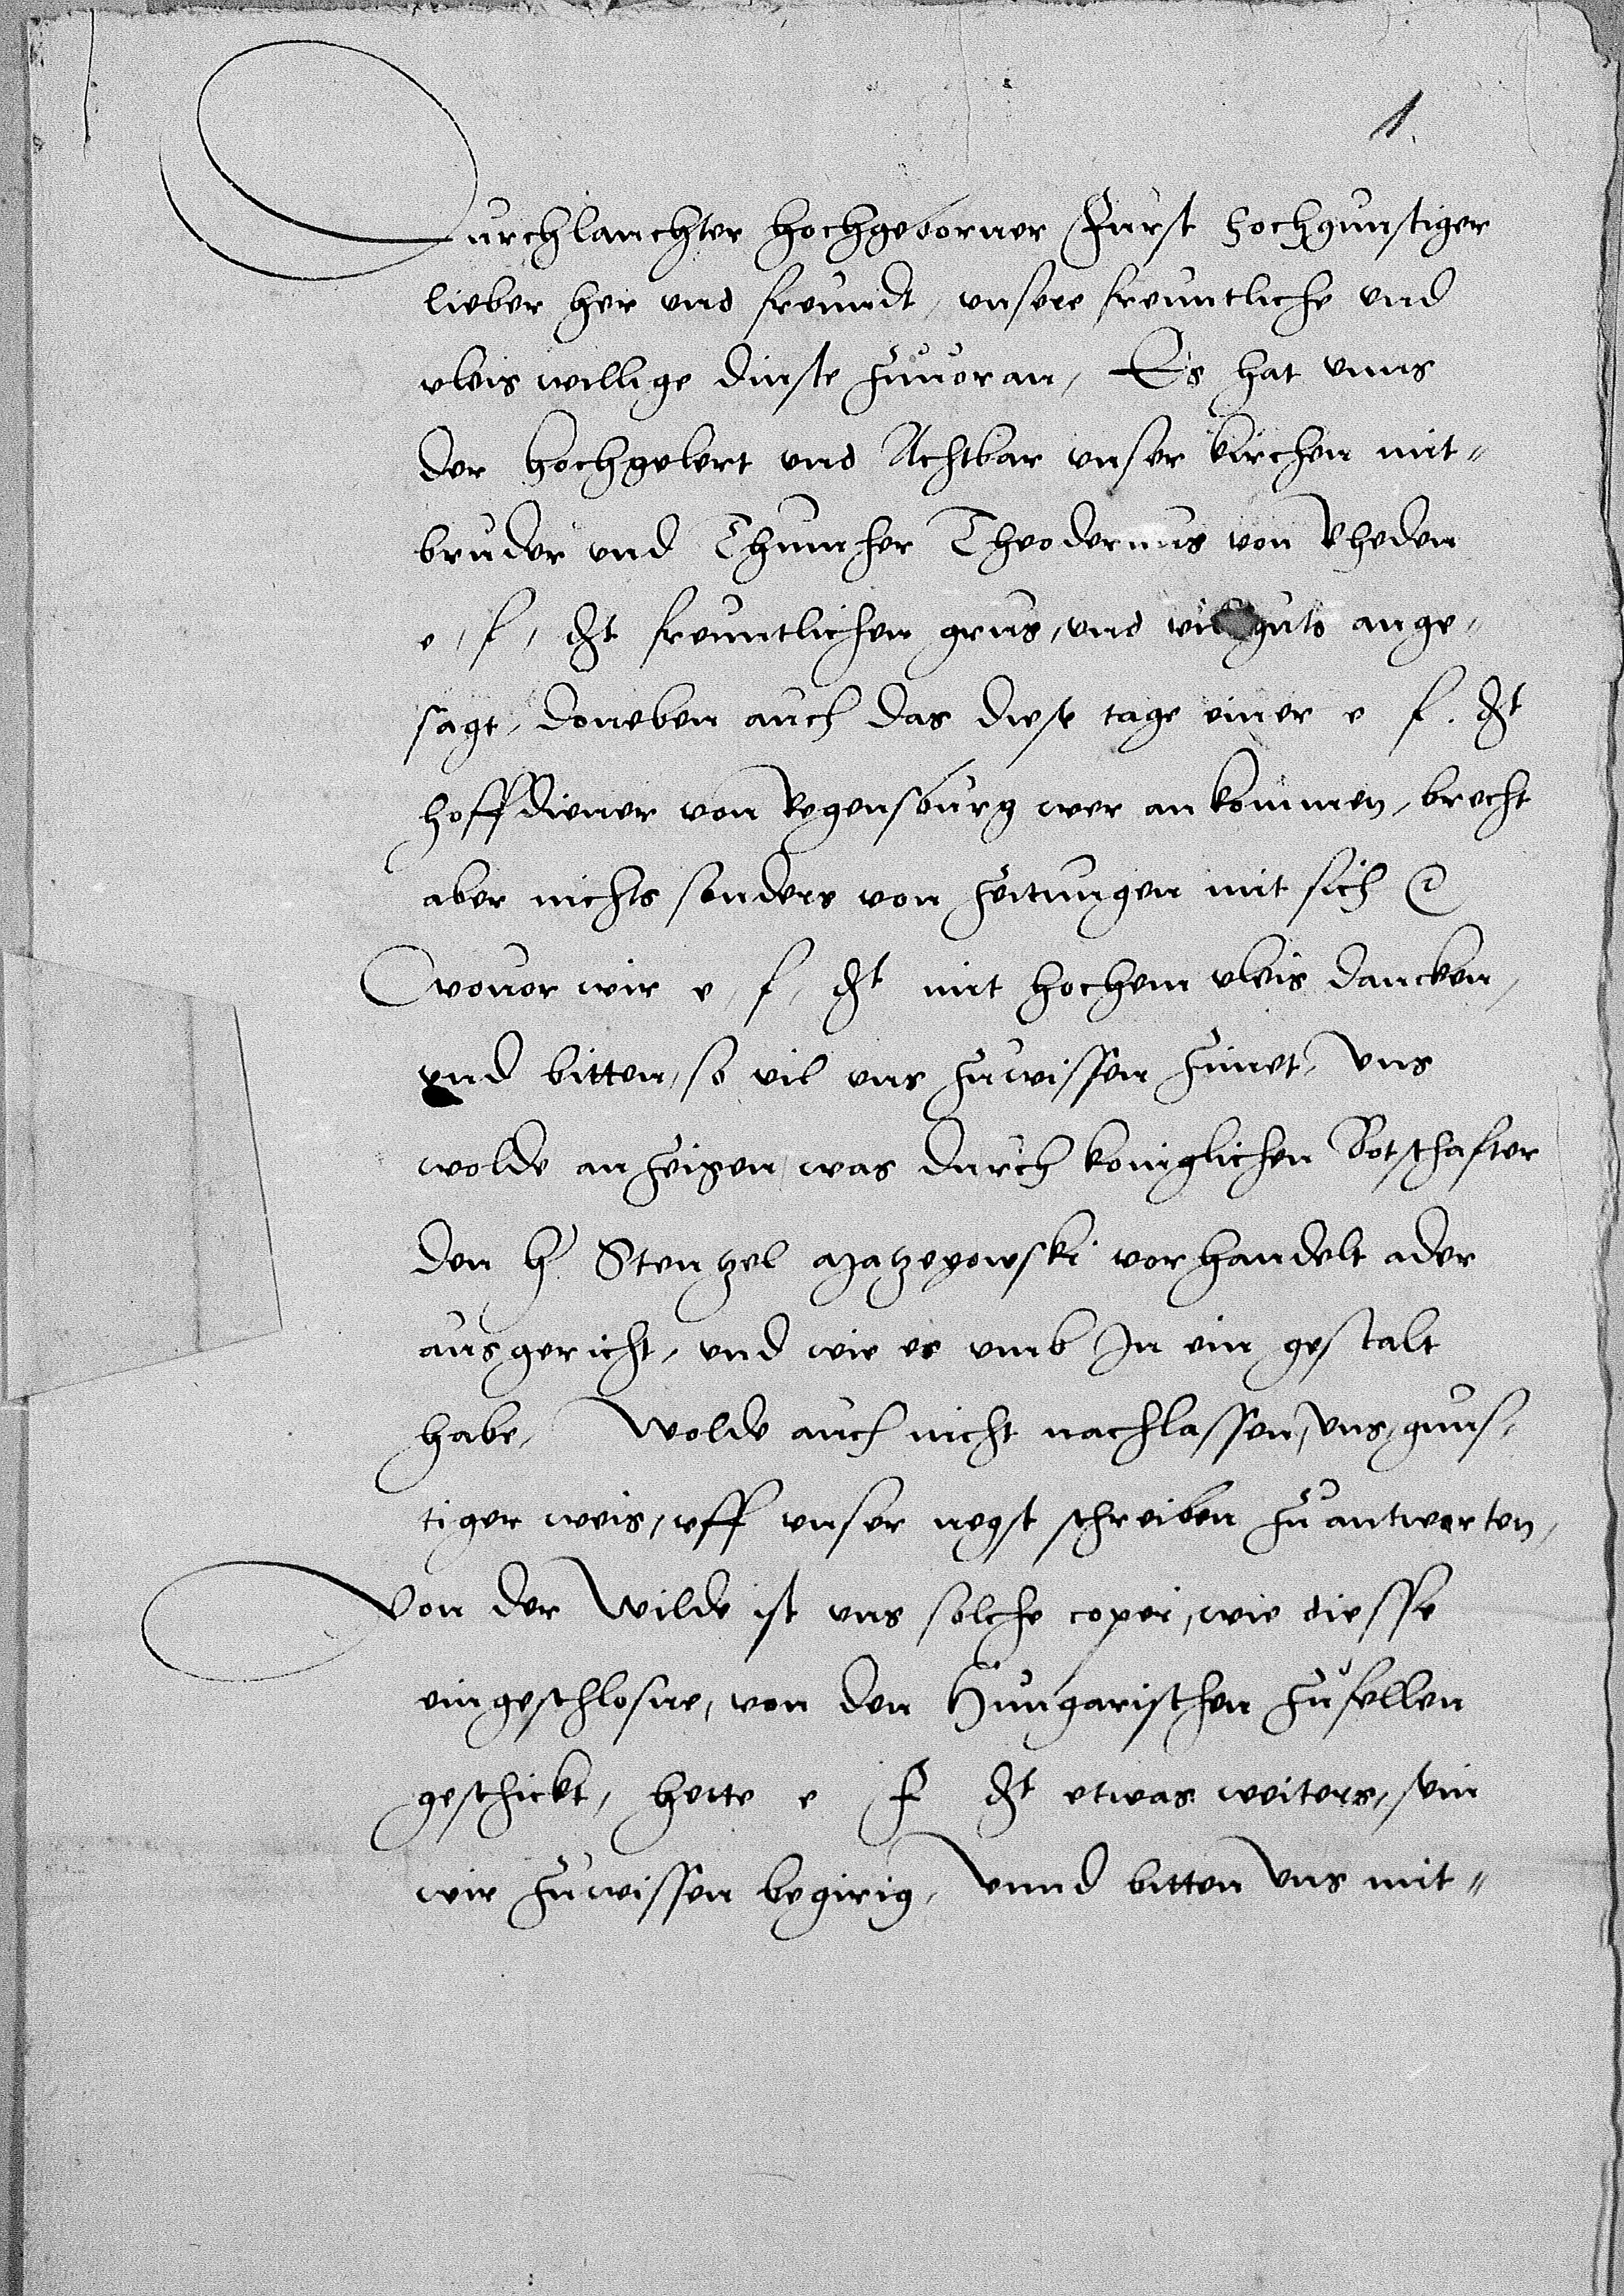 1.
Durchlauchter hochgeborner Furst hochgunstiger
lieber her vnd freundt, vnsere freuntliche vnd
vleis willige dinste zuuoran, Es hat vnns
der hochgelert vnd Achtbar vnser kirchen mit„
bruder vnd Thumher Theodericus von Rheden
e, f, dt freuntlichen grus, vnd viel guts ange„
sagt, doneben auch das diese tage einer e f. dt
hoffdiener von Regensburg wer ankommen, brecht
aber nichts sonders von zeitungen mit sich
wouor wir e, f, dt mit hochem vleis dancken,
vnd bitten, so vil vns zuwissen zimet, vns
wolde anzeigen, was durch koniglichen Botschafter
den h Stenzel Matzeyowski vorhandelt ader
ausgericht, vnd wie es vmb In ein gestalt
habe, Wolde auch nicht nachlassen, vns, guns„
tiger weis, vff vnser negst schreiben zu antworten,
Von der Wilde ist vns solche copei, wie diesse
eingeschlosne, von den Hungarischen zufellen
geschickt, hette e f dt etwas weiters, sein
wir zuwissen begirig, Vnnd bitten vns mit„